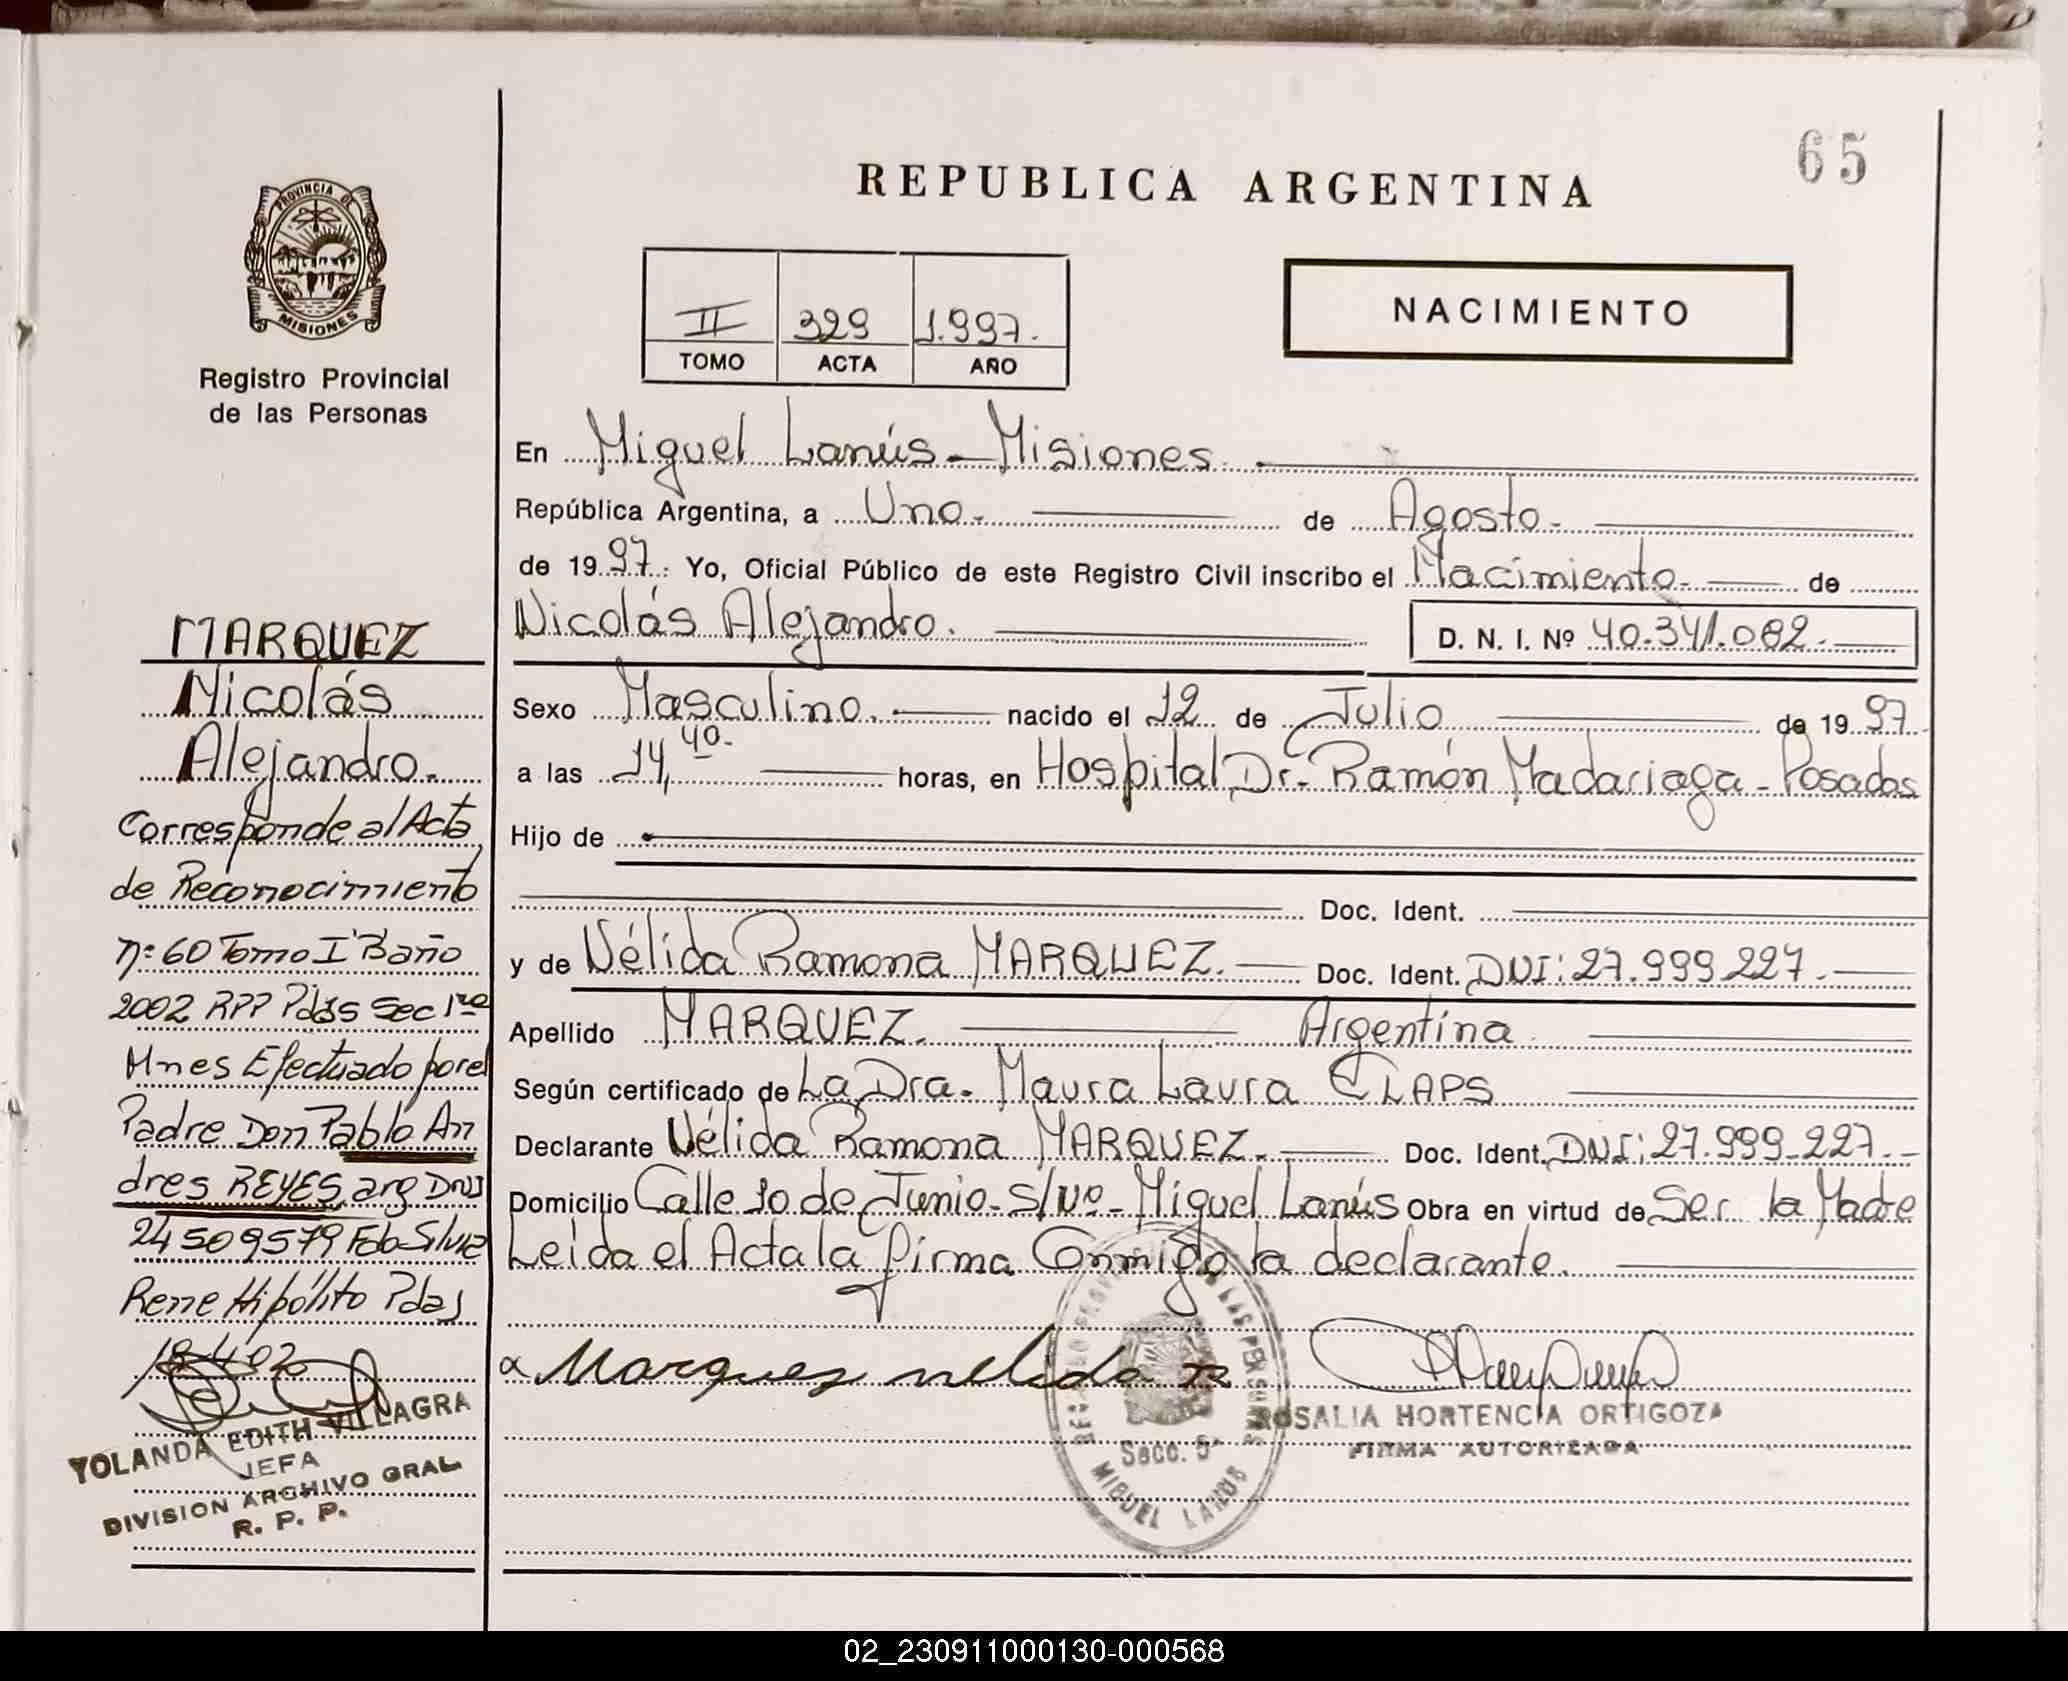 65
REPUBLICA ARGENTINA
PROVINCIA DE
MISIONES
Registro Provincial
de las Personas
II 329 1.997.
TOMO ACTA AÑO
NACIMIENTO
En Miguel Lanús - Misiones.
República Argentina, a Uno. de Agosto.
de 19 97. Yo, Oficial Público de este Registro Civil inscribo el Nacimiento. de
Nicolás Alejandro. D. N. I. Nº 40.341.082.
Sexo Masculino. nacido el 12 de Julio de 19 97
a las 14,40. horas, en Hospital Dr. Ramón Madariaga - Posadas
Hijo de
Doc. Ident.
y de Nélida Ramona MARQUEZ. Doc. Ident. DNI: 27.999.227.
Apellido MARQUEZ. Argentina
Según certificado de La Dra. Maura Laura CLAPS
Declarante Nélida Ramona MARQUEZ. Doc. Ident. DNI: 27.999.227.-
Domicilio Calle 10 de Junio - S/Nº - Miguel Lanús Obra en virtud de Ser la Madre
Leída el Acta la firma Conmigo la declarante.
Marquez nelida R
ROSALIA HORTENCIA ORTIGOZA
FIRMA AUTORIZADA
Secc. 5ª
MIGUEL LANUS
MARQUEZ
Nicolás
Alejandro.
Corresponde al Acta
de Reconocimiento
nº 60 Tomo I B año
2002 RPP Pdas Sec 1ra
Mnes Efectuado por el
Padre Don Pablo An
dres REYES, arg DNI
24509579 Fdo Silvia
Rene Hipólito Pdas
18-4-02
YOLANDA EDITH VILLAGRA
JEFA
DIVISION ARCHIVO GRAL
R. P. P.
02_230911000130-000568